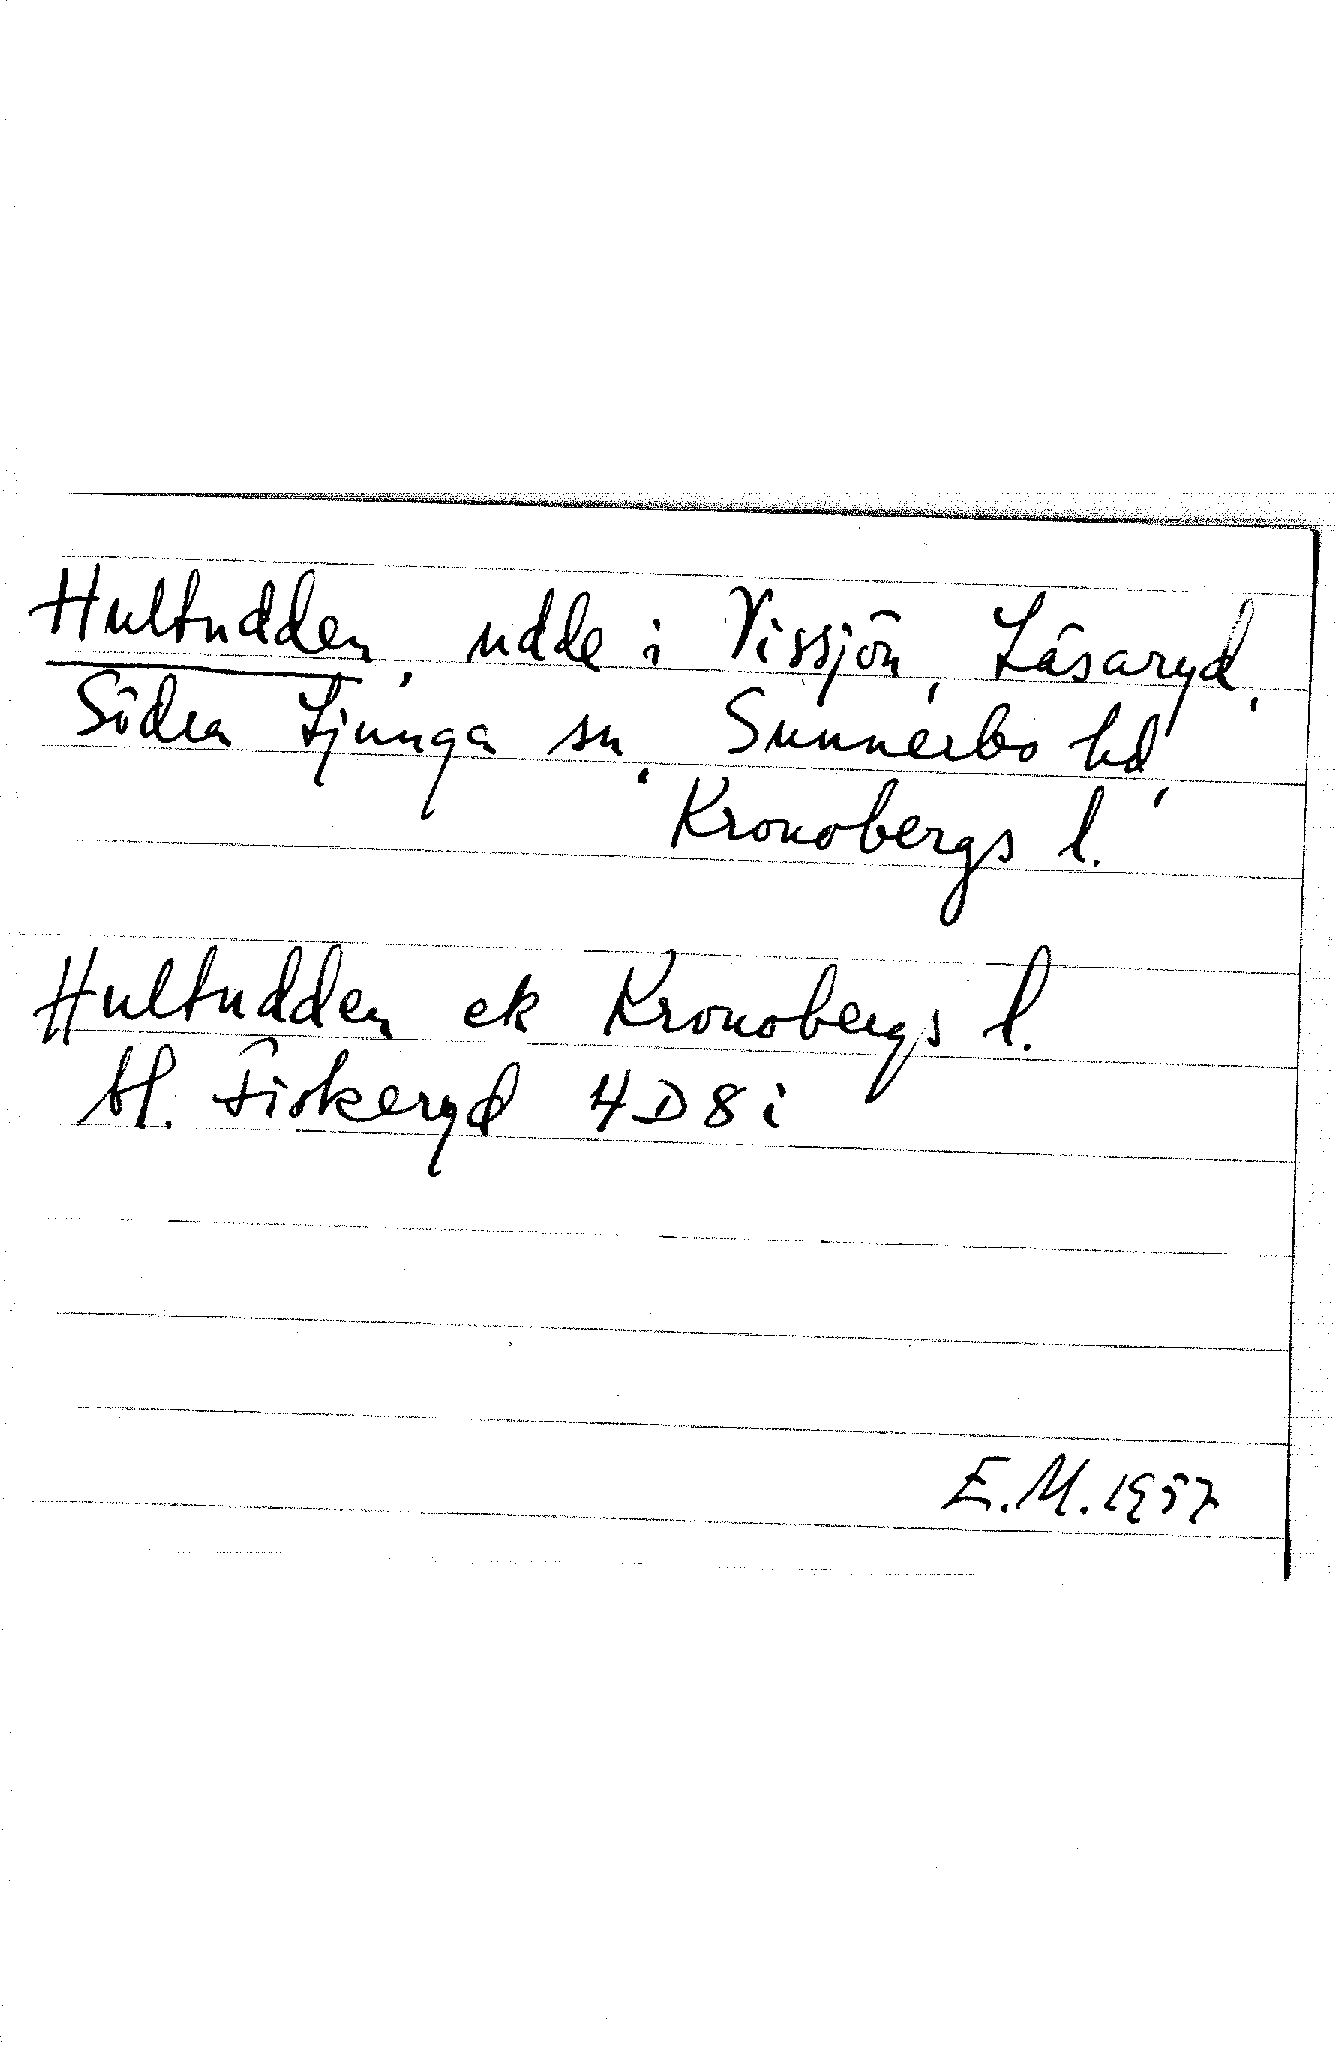 Hultudden, udde i Vissjön, Låsaryd,
Södra Ljunga sn, Sunnerbo hd,
Kronobergs l.
Hultudden ek Kronobergs l.
bl. Fiskeryd 4D8i
E.M. 1957